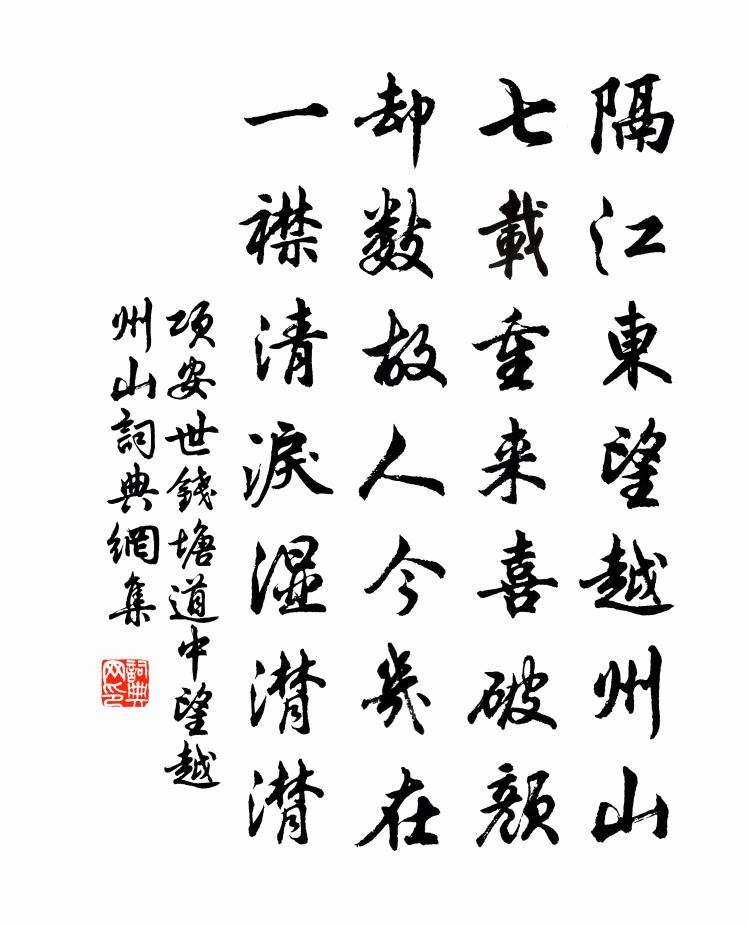 隔江東望越州山
七載重来喜破顔
却数故人今幾在
一襟清淚濕潸潸
項安世錢塘道中望越
州山詞典網集
詞典
网印